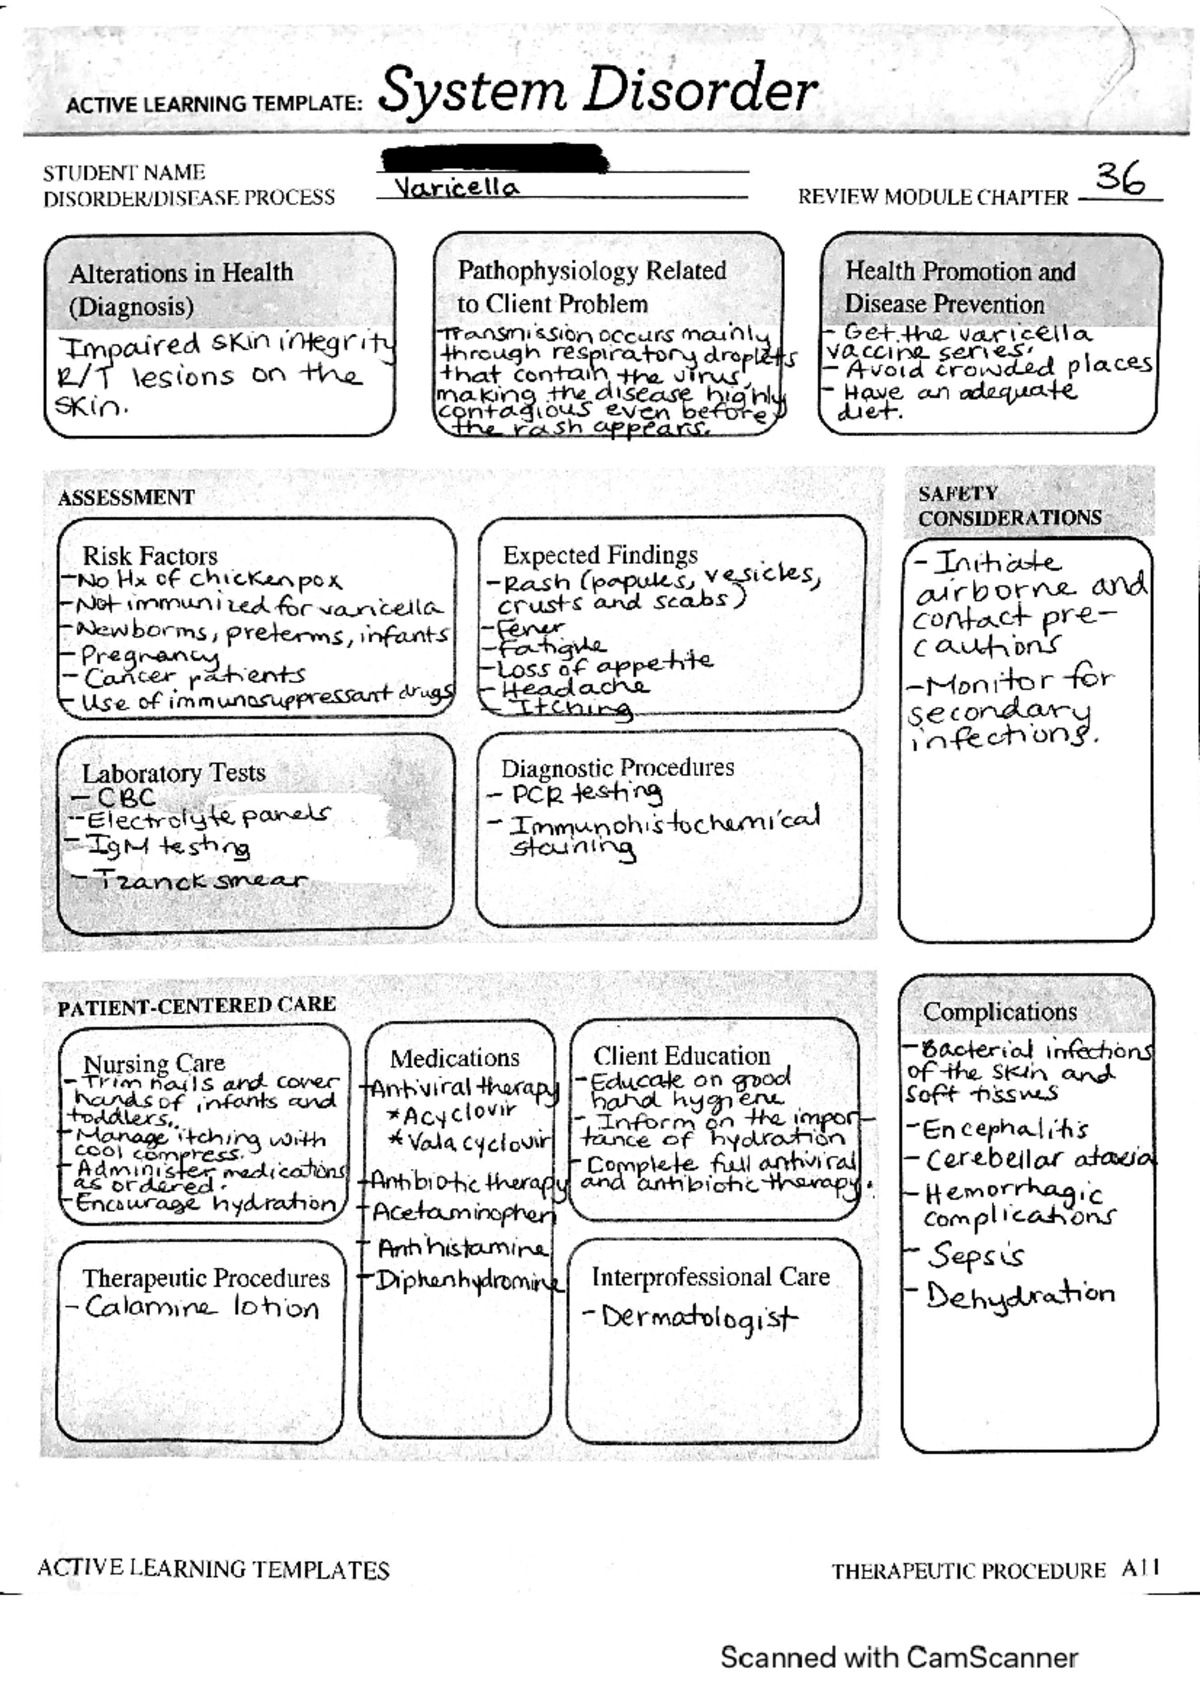 ACTIVE LEARNING TEMPLATE: System Disorder
STUDENT NAME
DISORDER/DISEASE PROCESS Varicella
REVIEW MODULE CHAPTER 36
Alterations in Health
(Diagnosis)
Impaired skin integrity
R/T lesions on the
skin.
Pathophysiology Related
to Client Problem
Transmission occurs mainly
through respiratory droplets
that contain the virus,
making the disease highly
contagious even before
the rash appears.
Health Promotion and
Disease Prevention
- Get the varicella
vaccine series.
- Avoid crowded places
- Have an adequate
diet.
ASSESSMENT
Risk Factors
- No Hx of chickenpox
- Not immunized for varicella
- Newborns, preterms, infants
- Pregnancy
- Cancer patients
- Use of immunosuppressant drugs
Expected Findings
- Rash (papules, vesicles,
crusts and scabs)
- Fever
- Fatigue
- Loss of appetite
- Headache
- Itching
Laboratory Tests
- CBC
- Electrolyte panels
- IgM testing
- Tzanck smear
Diagnostic Procedures
- PCR testing
- Immunohistochemical
staining
SAFETY
CONSIDERATIONS
- Initiate
airborne and
contact pre-
cautions
- Monitor for
secondary
infections.
PATIENT-CENTERED CARE
Nursing Care
- Trim nails and cover
hands of infants and
toddlers.
- Manage itching with
cool compress.
- Administer medications
as ordered.
- Encourage hydration
Medications
- Antiviral therapy
* Acyclovir
* Valacyclovir
- Antibiotic therapy
- Acetaminophen
- Antihistamine
- Diphenhydromine
Client Education
- Educate on good
hand hygiene
- Inform on the impor-
tance of hydration
- Complete full antiviral
and antibiotic therapy.
Therapeutic Procedures
- Calamine lotion
Interprofessional Care
- Dermatologist
Complications
- Bacterial infections
of the skin and
soft tissues
- Encephalitis
- Cerebellar ataxia
- Hemorrhagic
complications
- Sepsis
- Dehydration
ACTIVE LEARNING TEMPLATES
THERAPEUTIC PROCEDURE A11
Scanned with CamScanner